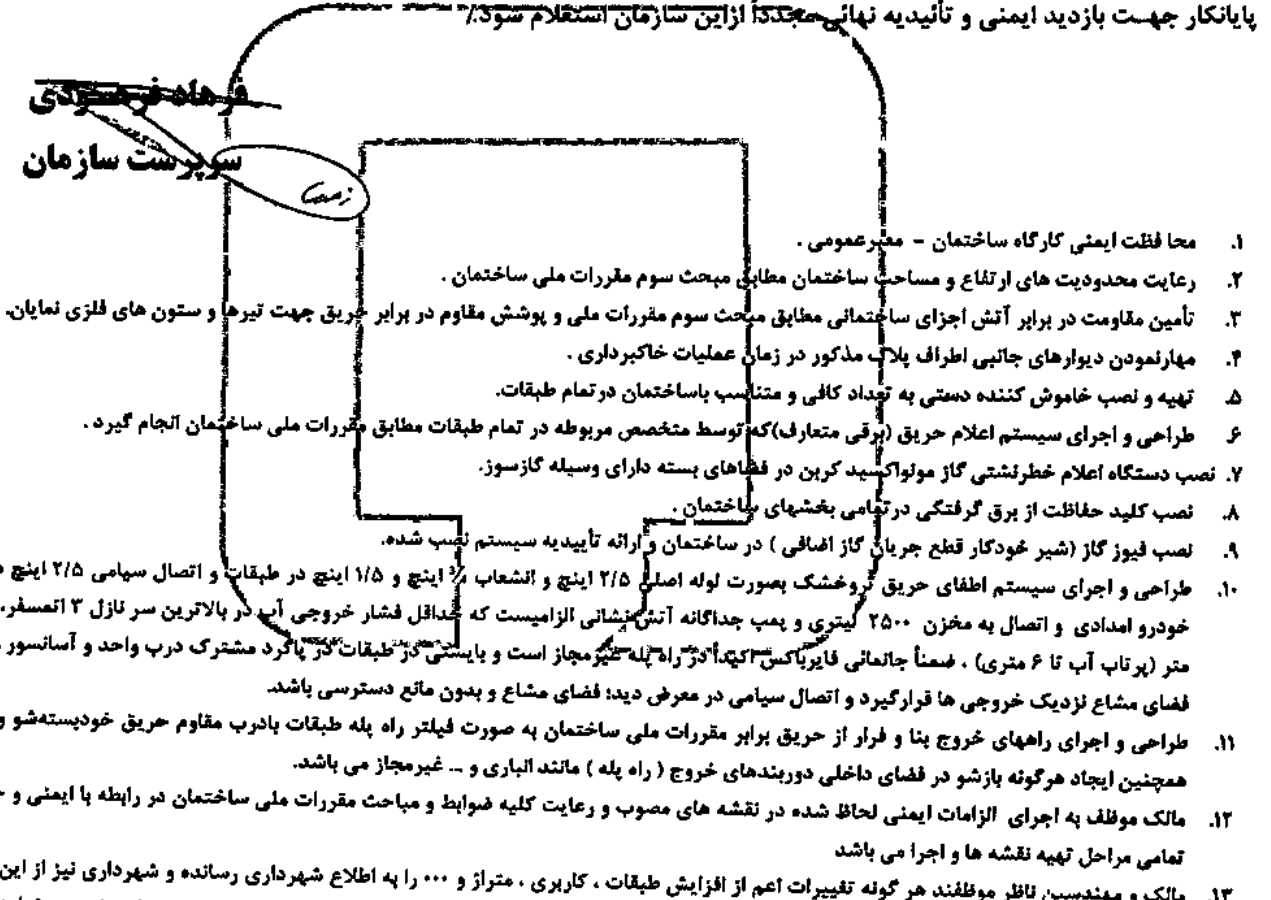 پایانکار جهت بازدید ایمنی و تأئیدیه نهائی مجدداً ازاین سازمان استعلام شود./
فرهاد
سوپرست سازمان
۱. محا فظت ایمنی کارگاه ساختمان - معبرعمومی .
۲. رعایت محدودیت های ارتفاع و مساحت ساختمان مطابق مبحث سوم مقررات ملی ساختمان .
۳. تأمین مقاومت در برابر آتش اجزای ساختمانی مطابق مبحث سوم مقررات ملی و پوشش مقاوم در برابر حریق جهت تیرها و ستون های فلزی نمایان.
۴. مهارنمودن دیوارهای جانبی اطراف پلاک مذکور در زمان عملیات خاکبرداری .
۵. تهیه و نصب خاموش کننده دستی به تعداد کافی و متناسب باساختمان درتمام طبقات.
۶. طراحی و اجرای سیستم اعلام حریق (برقی متعارف)که توسط متخصص مربوطه در تمام طبقات مطابق مقررات ملی ساختمان انجام گیرد .
۷. نصب دستگاه اعلام خطرنشتی گاز مونواکسید کربن در فضاهای بسته دارای وسیله گازسوز.
۸. نصب کلید حفاظت از برق گرفتگی درتمامی بخشهای ساختمان .
۹. نصب فیوز گاز (شیر خودکار قطع جریان گاز اضافی ) در ساختمان و ارائه تأییدیه سیستم نصب شده.
۱۰. طراحی و اجرای سیستم اطفای حریق تروخشک بصورت لوله اصلی ۲/۵ اینچ و انشعاب ¾ اینچ و ۱/۵ اینچ در طبقات و اتصال سیامی ۲/۵ اینچ
خودرو امدادی و اتصال به مخزن ۲۵۰۰ لیتری و پمپ جداگانه آتش نشانی الزامیست که حداقل فشار خروجی آب در بالاترین سر نازل ۳ اتمسفر.
متر (پرتاب آب تا ۶ متری) . ضمناً جانمائی فایرباکس اکیداً در راه پله غیرمجاز است و بایستی در طبقات در پاگرد مشترک درب واحد و آسانسور
فضای مشاع نزدیک خروجی ها قرارگیرد و اتصال سیامی در معرض دید؛ فضای مشاع و بدون مانع دسترسی باشد.
۱۱. طراحی و اجرای راههای خروج بنا و فرار از حریق برابر مقررات ملی ساختمان به صورت فیلتر راه پله طبقات بادرب مقاوم حریق خودبسته‌شو و
همچنین ایجاد هرگونه بازشو در فضای داخلی دوربندهای خروج ( راه پله ) مانند انباری و ... غیرمجاز می باشد.
۱۲. مالک موظف به اجرای الزامات ایمنی لحاظ شده در نقشه های مصوب و رعایت کلیه ضوابط و مباحث مقررات ملی ساختمان در رابطه با ایمنی و
تمامی مراحل تهیه نقشه ها و اجرا می باشد
۱۳. مالک و مهندسین ناظر موظفند هر گونه تغییرات اعم از افزایش طبقات ، کاربری ، متراژ و ... را به اطلاع شهرداری رسانده و شهرداری نیز از این